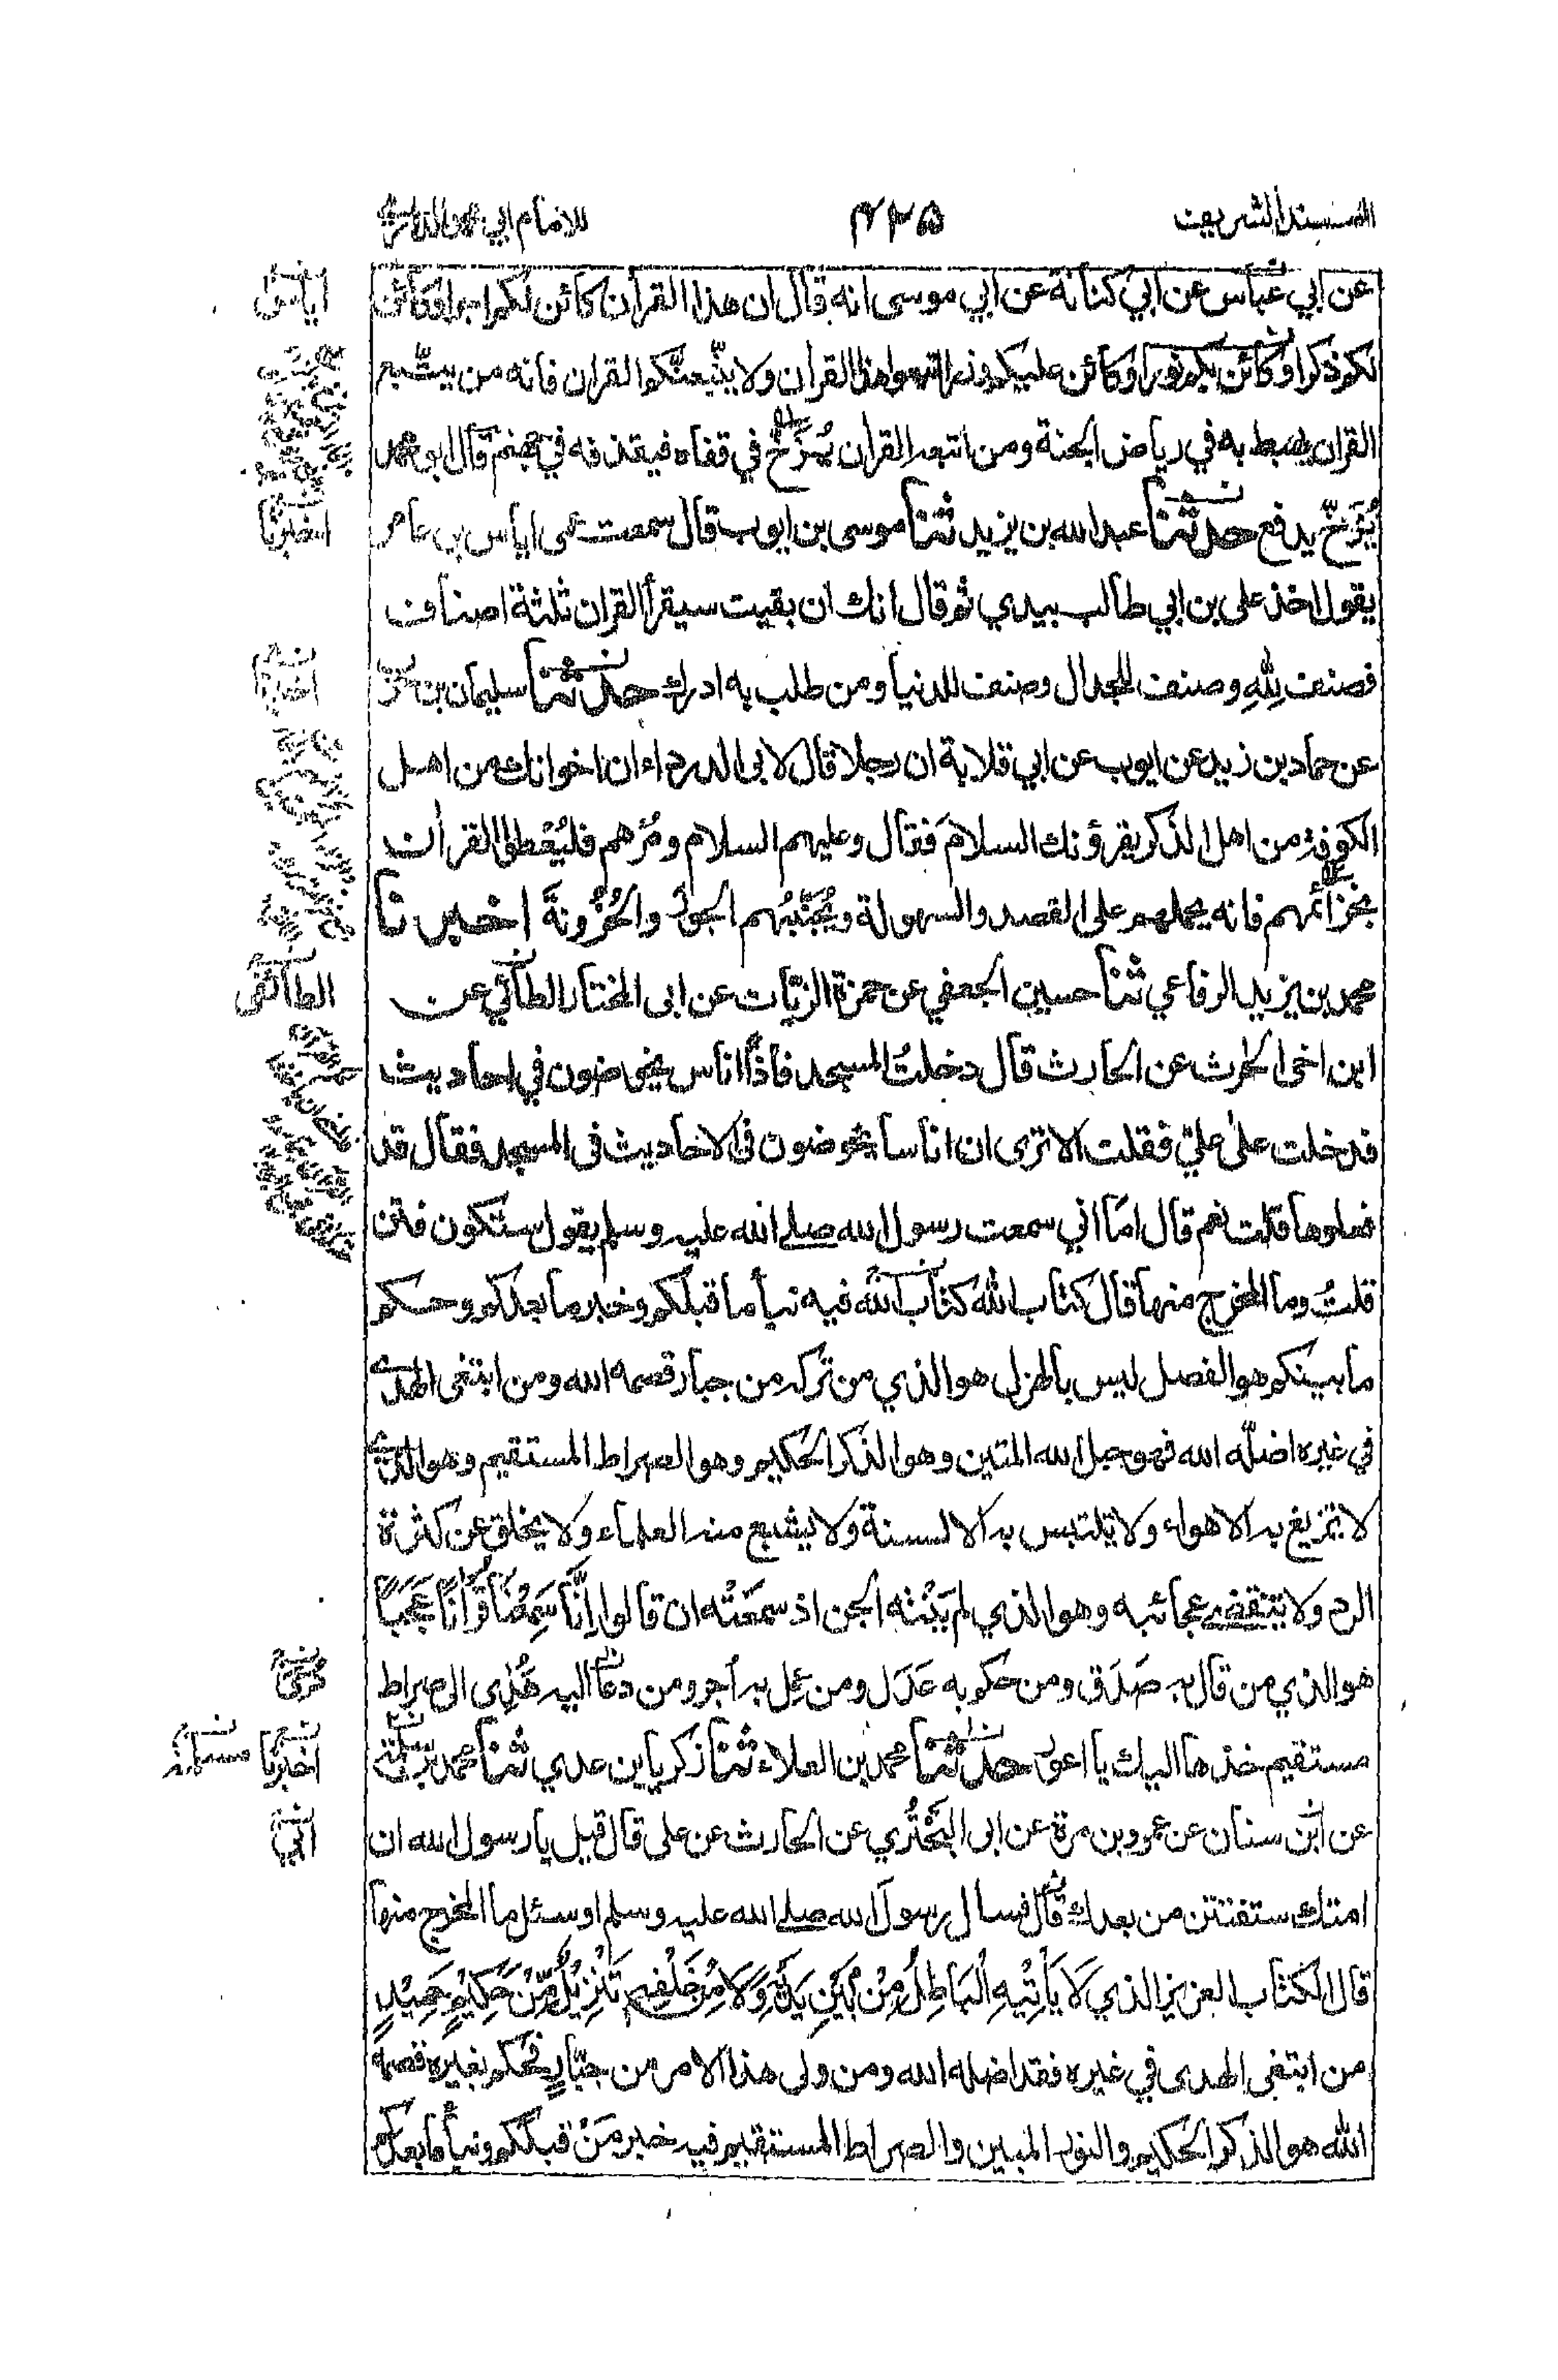 المسند الشريف ۴۲۵ للامام ابي محمد الدارمي
عن ابي عباس عن ابي كنانة عن ابي موسى انه قال ان هذا القرآن كائن لكم اجرا وكائن
لكم ذكرا وكائن بكم نورا وكائن عليكم وزرا اتبعوا هذا القرآن ولا يتّبعنّكم القرآن فانه من يتّبع
القرآن يهبط به في رياض الجنة ومن اتبعه القرآن يُزَخّ في قفاه فيقذفه في جهنم قال ابو محمد
يُزَخّ يدفع حدثنا عبد الله بن يزيد ثنا موسى بن ايوب قال سمعت عمى اياس بن عامر
يقول اخذ على بن ابي طالب بيدي ثم قال انك ان بقيت سيقرأ القرآن ثلثة اصناف
فصنف لِلّهِ وصنف للجدال وصنف للدنيا ومن طلب به ادرك حدثنا سليمان بن حرب
عن حماد بن زيد عن ايوب عن ابي قلابة ان رجلا قال لابى الدرداء ان اخوانك من اهل
الكوفة من اهل الذكر يقرؤنك السلامَ فقال وعليهم السلام ومُرْهم فليُعْطوا القرآن
بخزائمهم فانه يحملهم على القصد والسهولة ويُجَنِّبُهم الجورَ والحُزُونةَ اخبرنا
محمد بن يزيد الرفاعي ثنا حسين الجعفي عن حمزة الزيّات عن ابى المختار الطائي عن
ابن اخى الحرث عن الحارث قال دخلتُ المسجد فاذا اناس يخوضون في احاديث
فدخلت على عليّ فقلت الا ترى ان اناسا يخوضون فى الاحاديث فى المسجد فقال قد
فعلوها قلت نعم قال امّا اني سمعت رسول الله صلى الله عليه وسلم يقول ستكون فتن
قلتُ وما المخرج منها قال كتاب الله كتاب الله فيه نبأ ما قبلكم وخبر ما بعدكم وحكم
ما بينكم هو الفصل ليس بالهزل هو الذي من تركه من جبار قصمه الله ومن ابتغى الهدى
في غيره اضلّه الله فهو حبل الله المتين وهو الذكر الحكيم وهو الصراط المستقيم وهو الذي
لا تزيغ به الاهواء ولا تلتبس به الالسنة ولا يشبع منه العلماء ولا يخلق عن كثرة
الرد ولا تنقضى عجائبه وهو الذي لم يَنْتَه الجن اذ سمعَتْه ان قالوا اِنَّا سَمِعْنَا قُرْاٰنًا عَجَبًا
هو الذي من قال به صَدَق ومن حكم به عَدَل ومن عمِل به اُجر ومن دعا اليه هُدِى الى صراط
مستقيم خذها اليك يا اعور حدثنا محمد بن العلاء ثنا زكريا بن عدي ثنا محمد بن سلمة
عن ابن سنان عن عمرو بن مرة عن ابى البَخْتُري عن الحارث عن على قال قيل يا رسول الله ان
امتك ستفتتن من بعدك قال فسال رسول الله صلى الله عليه وسلم او سئل ما المخرج منها
قال الكتاب العزيز الذي لَا يَأْتِيْهِ الْبَاطِلُ مِنْ بَيْنِ يَدَيْهِ وَلَا مِنْ خَلْفِهٖ تَنْزِيْلٌ مِّنْ حَكِيْمٍ حَمِيْدٍ
من ابتغى الهدى في غيره فقد اضله الله ومن ولى هذا الامر من جبّارٍ فحكم بغيره قصمه
الله هو الذكر الحكيم والنور المبين والصراط المستقيم فيه خبر مَنْ قبلكم ونبأ ما بعدكم
اخبرنا
اخبرنا
الطائفى
اخبرنا
ابي